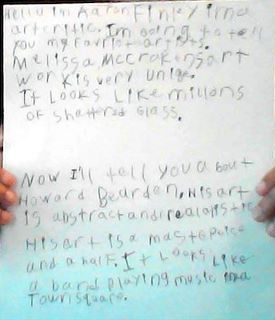 Hello im Aaron Finley ima
art critic. Im going to tell
you my Favriot artists.
Melissa Mccrakensart
work is very uniqe.
It Looks Like millons
of shattered glass.
Now I'll tell you about
Howard Bearden. His art
is abstract and realistic
His art is a mastepeice
and a half. It Looks Like
a band playing music ina
Townsquare.